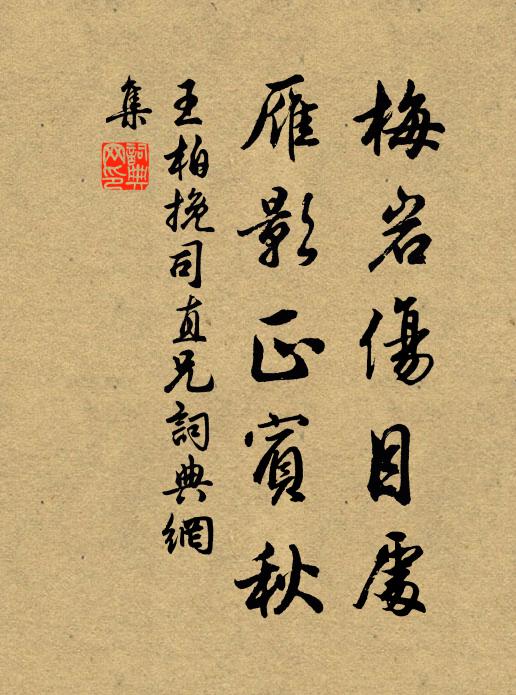 梅岩傷目處
雁影正賓秋
王柏挽司直兄詞典網
集
詞典網印